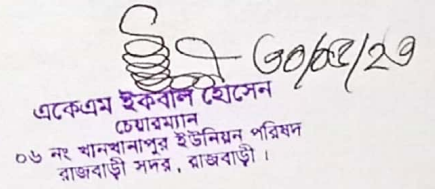 ৩০/০৫/২৩
একেএম ইকবাল হোসেন
চেয়ারম্যান
০৬ নং খানখানাপুর ইউনিয়ন পরিষদ
রাজবাড়ী সদর, রাজবাড়ী।